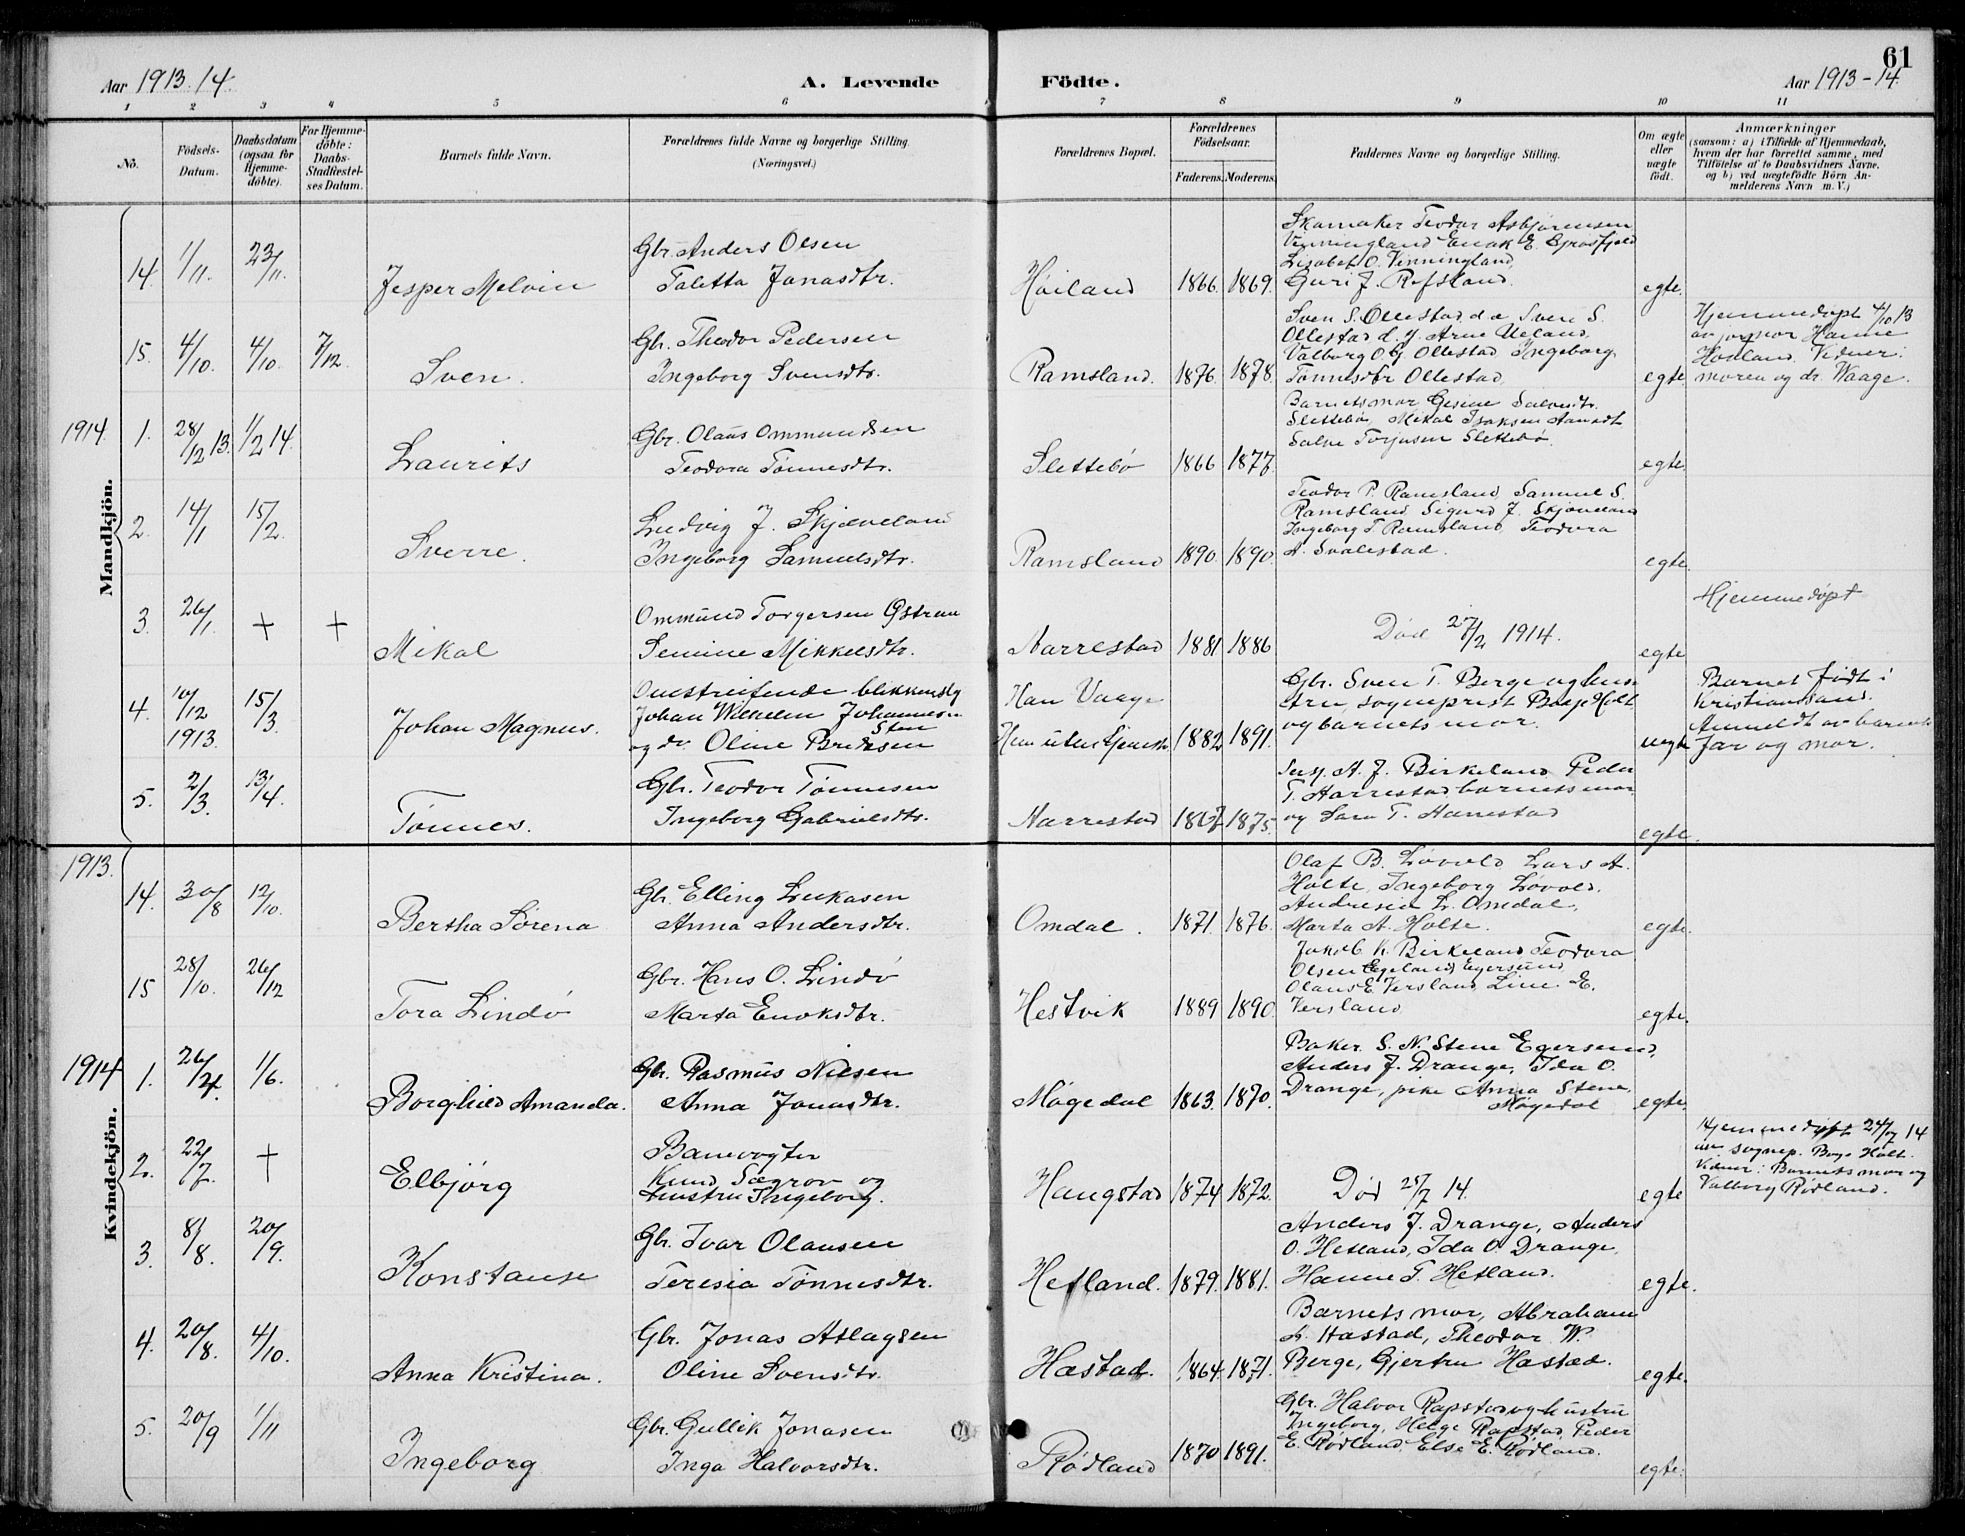 61
Aar 1913.14.
A. Levende Födte.
Aar 1913-14
1 2 3 4 5 6 7 8 9 10 11
No.
Födsels-Datum.
Daabsdatum (ogsaa for Hjemme-döbte).
For Hjemme-döbte: Daabs-Stadfæstel-ses Datum.
Barnets fulde Navn.
Forældrenes fulde Navne og borgerlige Stilling. (Næringsvei.)
Forældrenes Bopæl.
Forældrenes Födselsaar.
Faderens. Moderens.
Faddernes Navne og borgerlige Stilling.
Om ægte eller uægte födt.
Anmærkninger
(saasom: a) i Tilfælde af Hjemmedaab, hvem der har forrettet samme, med Tilföielse af to Daabsvidners Navne, og b) ved uægtefödte Börn An-melderens Navn m. V.)
Mandkjön.
14. 1/11. 23/11. Jesper Melvin
Gbr. Anders Olsen
Taletta Jonasdtr.
Høiland 1866. 1869.
Skomaker Teodor Asbjørnsen
Vinningland Enok E. Gjrosfjeld
Lisabet O. Vinningland,
Guri J. Rofsland.
egte.
15. 4/10. 4/10. 7/12. Sven.
Gbr. Theodor Pedersen
Ingeborg Svensdtr.
Ramsland. 1876. 1878.
Sven S. Ollestad d.e. Sven S.
Ollestad d.y. Arne Ueland,
Valborg O.G. Ollestad, Ingeborg
Tønnesdtr Ollestad,
egte.
Hjemmedøpt 4/10 13
av jormor Hanne
Hovland. Vidner:
moren og dr. Waage.
1914. 1. 28/12 13. 1/2 14. Laurits
Gbr. Olaus Ommundsen
Teodora Tønnesdtr.
Slettebö 1866 1877.
Barnets mor Gesine Salvesdtr.
Slettebö, Mikal Isaksen
Salve Torjusen Slettebö.
egte.
2. 14/1 15/2. Sverre.
Ludvig J. Skjæveland
Ingeborg Samuelsdtr.
Ramsland 1890. 1890.
Teodor P. Ramsland, Samuel S.
Ramsland Sigurd J. Skjæveland
Ingeborg T. Ramsland, Teodora
A. Svalestad.
egte.
3. 26/1. + + Mikal
Ommund Torgersen Østrem
Semine Mikkelsdtr.
Narrestad 1881 1886
Død 27/2 1914.
egte
Hjemmedøpt
4. 10/12 1913. 15/3. Johan Magnus.
Omstreifende blikkenslg
Johan Wilhelm Johannesen
Sten
og do Oline Bredesen
Han Vaage
Hun uten hjemst. 1882 1891.
Gbr. Sven T. Berge og hus-
tru, sogneprest Boye Holt
og barnets mor.
uegte
Barnet født i
Kristiansand.
Anmeldt av barnets
far og mor.
5. 2/3. 13/4. Tønnes.
Gbr. Teodor Tønnesen
Ingeborg Gabrielsdtr.
Narrestad 1867 1875.
Sersj. A. J. Birkeland, Peder
T. Harrestad barnets mor
og Sara T. Harrestad
egte.
1913.
Kvindekjön.
14. 30/8 12/10. Bertha Sørena
Gbr. Elling Lukasen
Anna Andersdtr.
Omdal. 1871. 1876.
Olaf B. Løvold Lars A.
Holte, Ingeborg Løvold,
Andresia L. Omdal,
Marta A. Holte.
egte.
15 28/10. 26/12 Tora Lindö
Gbr. Hans O. Lindö
Marta Enoksdtr.
Hestvik 1889 1890.
Jakob K. Birkeland Teodora
Olsen Egeland, Egersund
Olaus E. Versland, Line E.
Versland
egte.
1914 1. 26/4. 1/6. Borghild Amanda.
Gbr. Rasmus Nilsen
Anna Jonasdtr.
Møgedal 1863. 1870.
Baker S. N. Stene Egersund,
Anders J. Drange, Ida O.
Drange, pike Anna Stene,
Møgedal
egte.
2. 22/7. + Elbjørg
Banevogter
Knud Sægrov og
hustru Ingeborg.
Haugstad 1874 1872.
Død 25/7 14.
egte
Hjemmedøpt 24/7 14
av sognep. Boye Holt.
Vidner: Barnets mor og
Valborg Rödland.
3. 8/8. 20/9. Konstanse
Gbr. Ivar Olausen
Teresia Tönnesdtr.
Hetland. 1879. 1881.
Anders J. Drange, Anders
O. Hetland, Ida O. Drange,
Hanne T. Hetland.
egte.
4. 20/8. 4/10. Anna Kristina.
Gbr. Jonas Aslagsen
Oline Svensdtr.
Hæstad. 1864. 1871.
Barnets mor, Abraham
A. Hæstad, Theodor W.
Berge, Gjertru Hæstad.
egte.
5. 20/9 1/11 Ingeborg
Gbr. Gullik Jonasen
Inga Halvorsdtr.
Rödland 1870 1891.
Gbr. Halvor Rapstad og hustru
Ingeborg, Helge Rapstad, Peder
E. Rödland Else E. Rödland.
egte.